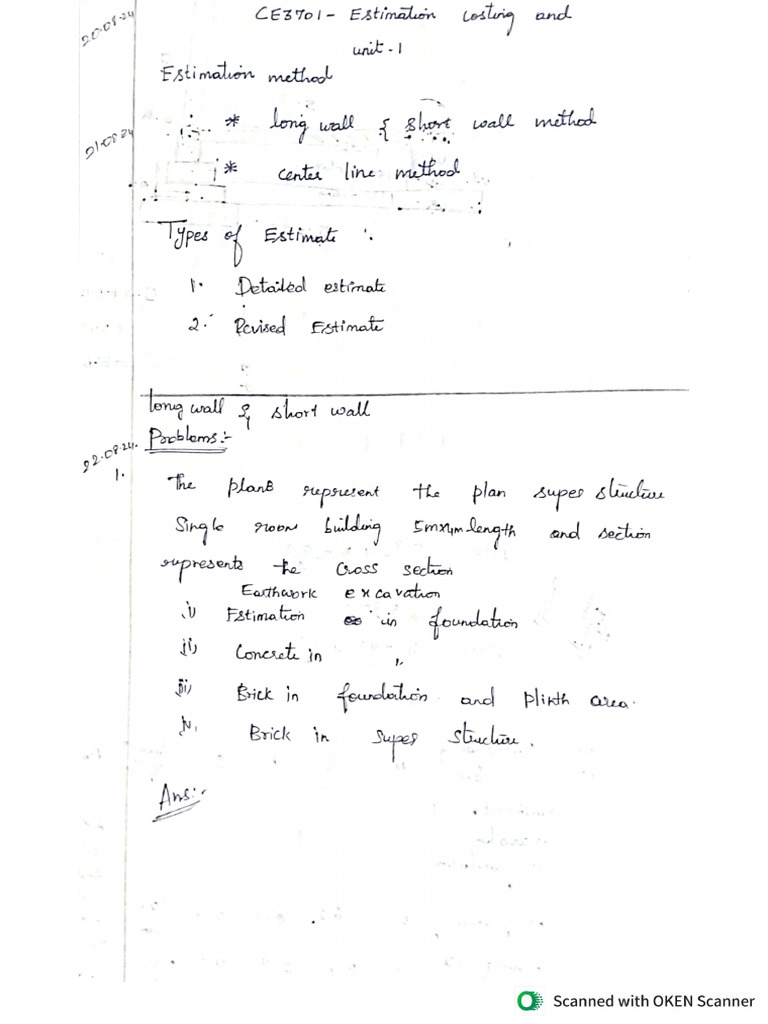 20-08-24
CE3701 - Estimation costing and
unit - 1
Estimation method
* long wall & short wall method
21-08-24
* center line method
Types of Estimate :
1. Detailed estimate
2. Revised Estimate
long wall & short wall
22-08-24.
Problems:-
1.
The plans represent the plan super structure
Single room building 5mx4m length and section
represents the cross section
Earthwork excavation
i) Estimation in foundation
ii) Concrete in "
iii) Brick in foundation and plinth area.
iv, Brick in super structure.
Ans:-
Scanned with OKEN Scanner